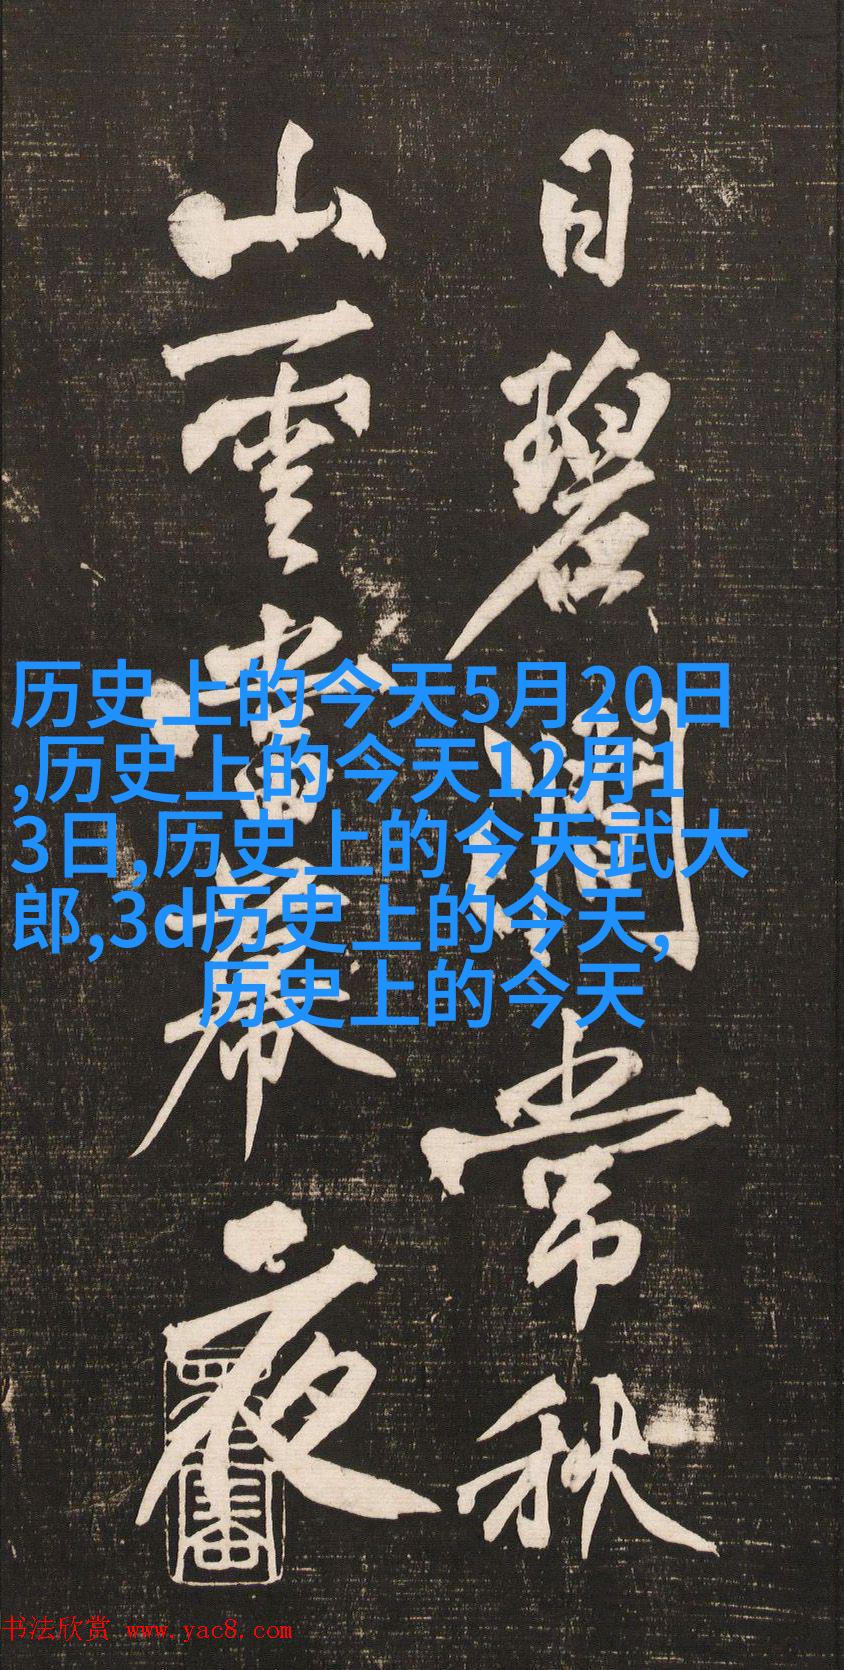 日碧澗常秋
山雲當幕夜
历史上的今天5月20日
,历史上的今天12月1
3日,历史上的今天武大
郎,3d历史上的今天,
历史上的今天
书法欣赏 www.yac8.com